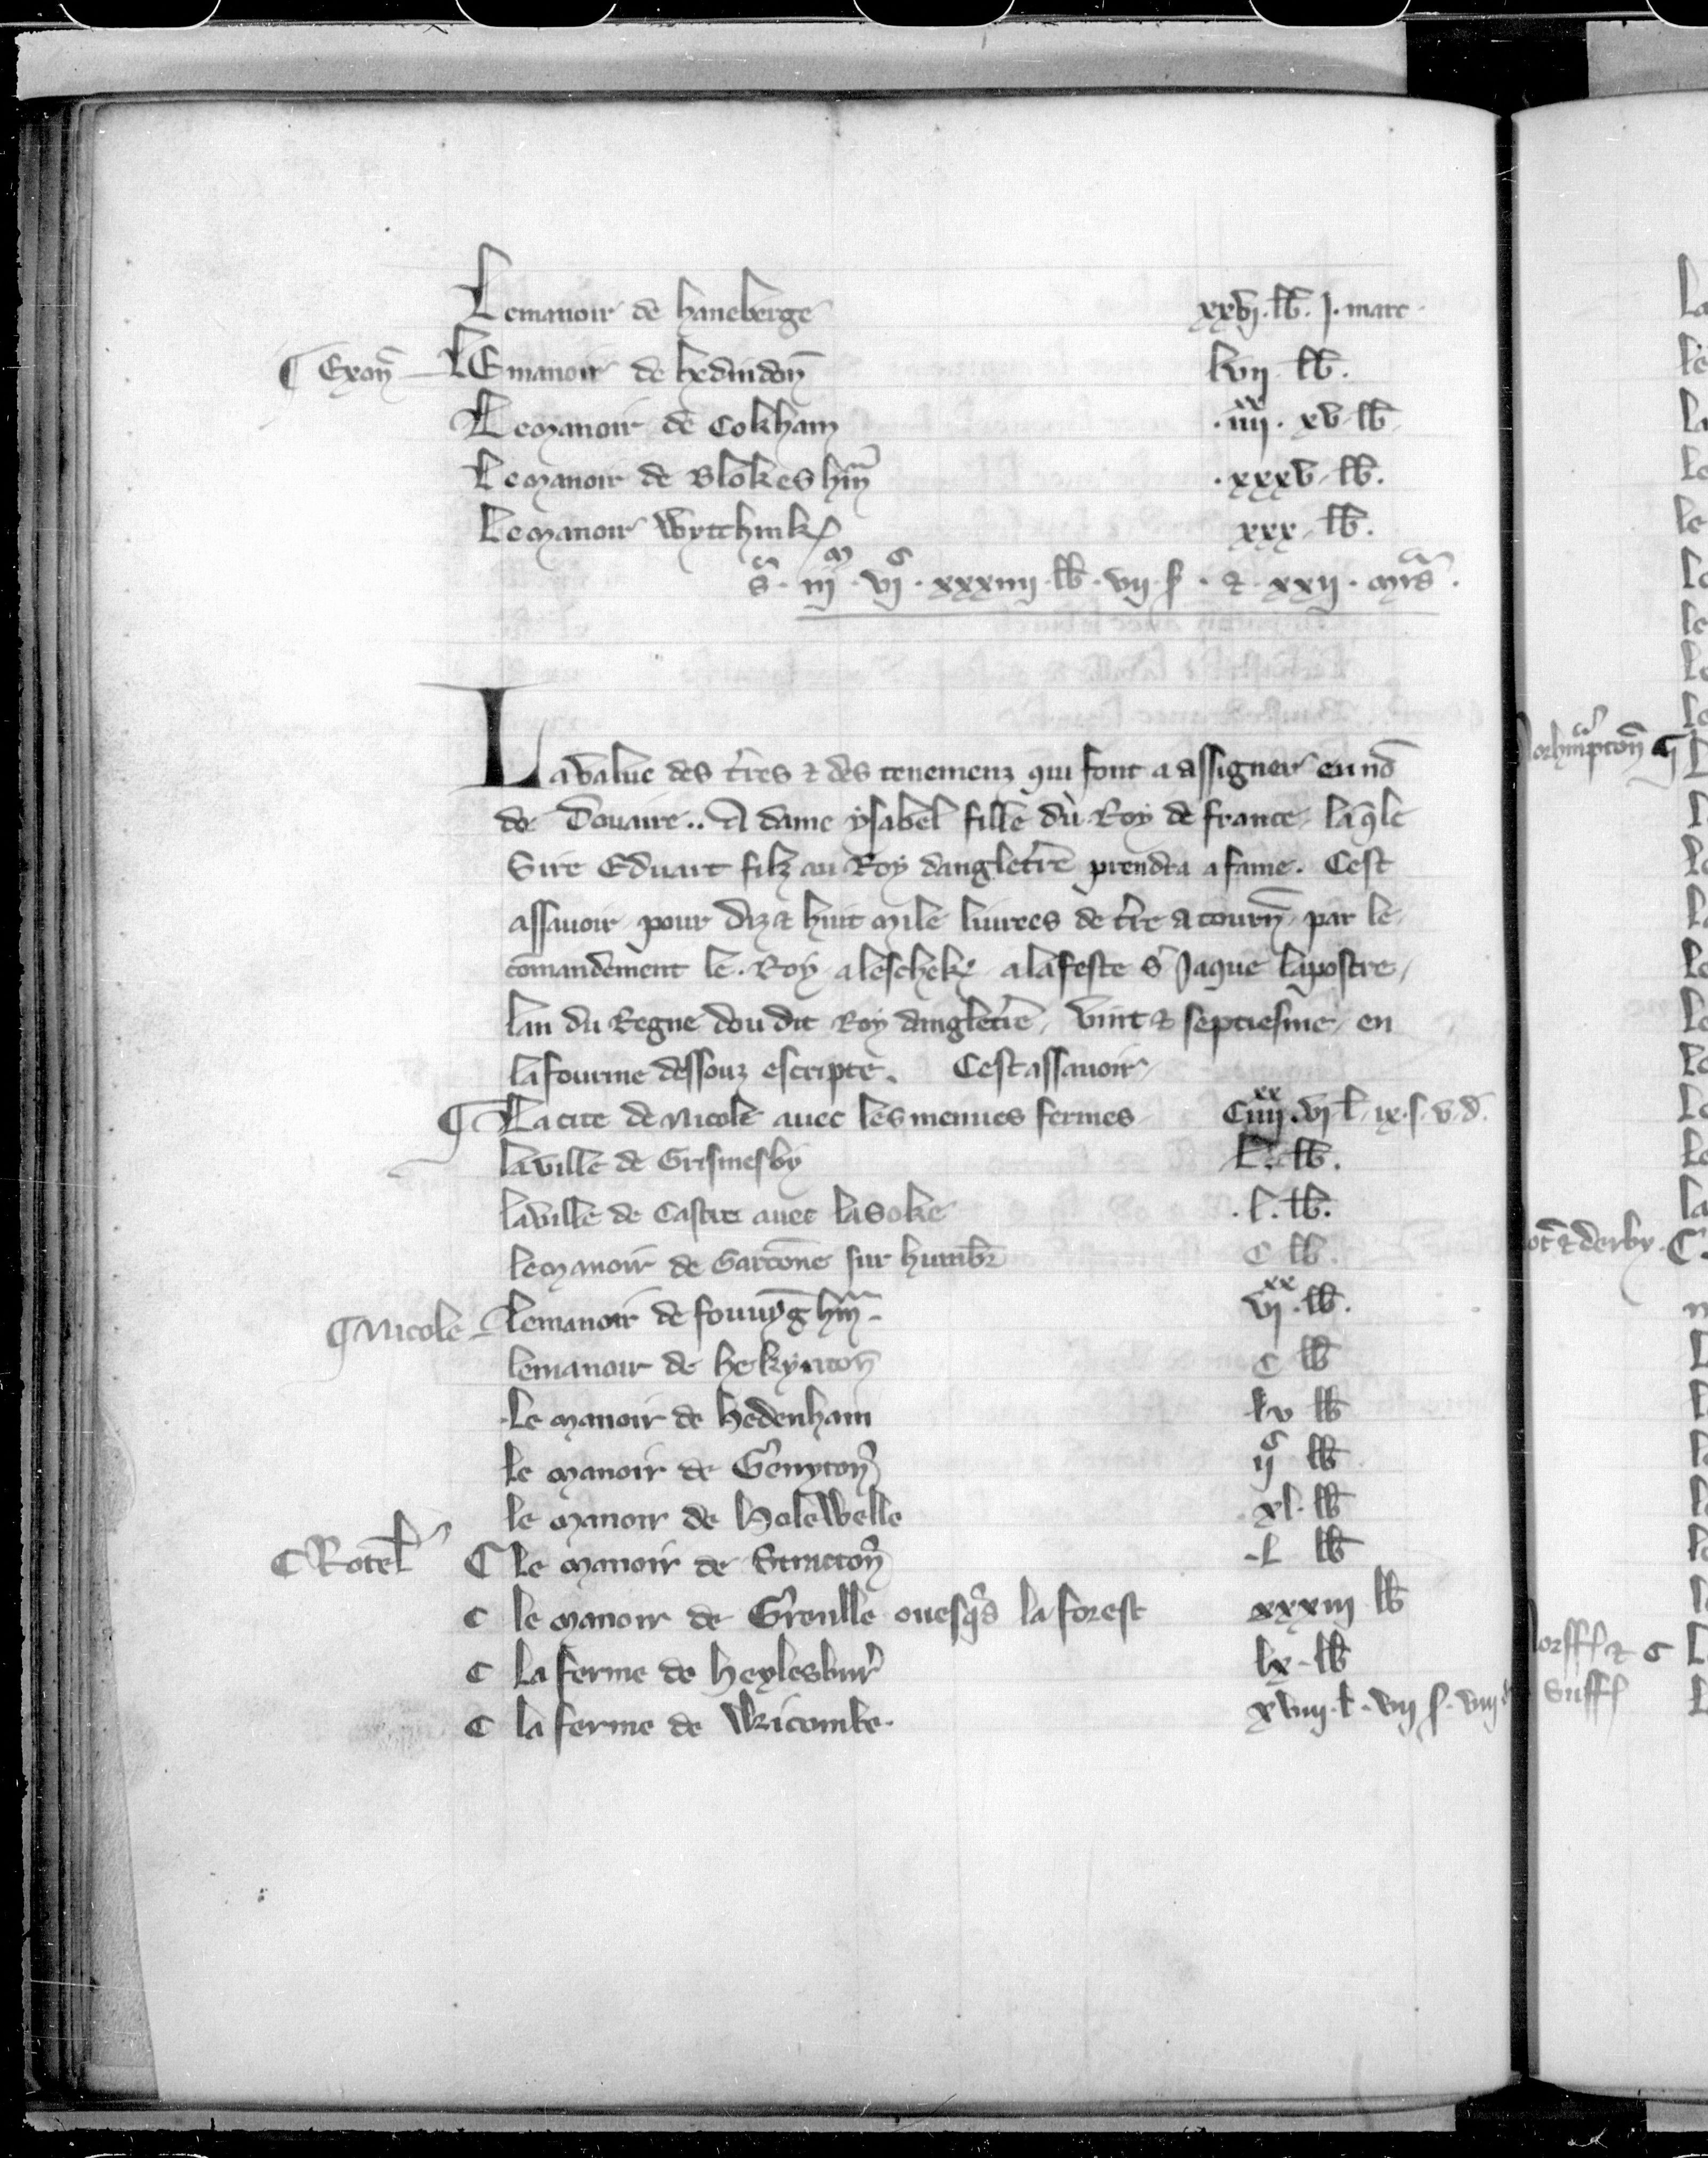 Lemanoir de haneberge xxvj. lb̄. j. marc
¶ Exoñ LEmanoir de hedindoñ lvij lb̄.
Lemanoir de Cokham .iiij^xx. xv lb̄
Lemanoir de Blokeshm̃ .xxxv lb̄.
Lemanoir Wytthink xxx lb̄.
s̃. iij^m. vj^c. xxxiiij lb̄. vij s̄. & xxij. mrs̃.
La value des t̃res & des tenemenz qui sont a assigner en nõ
de Douaire.. A dame ysabel fille du Roy de france laq̃le
Sire Eduart filz au Roy dangletr̃e prendra a fame. Cest
assauoir pour diz & huit mile liurees de t̃re a tourñ par le
cõmandement le. Roy a leschek̃ alafeste s̃ Jaque lapostre,
lan du Regne dou dit Roy dangletr̃e, vint & septiesme, en
lafourme dessouz escripte. Cest assauoir
¶ La cite de Nicole auec les menues fermes Ciiij^xx. vj l. ix. s. v. d.
laville de Grismesby l. lb̄.
laville de Castre auec lasoke .l. lb̄.
lemanoir de Gartone sur humbr̃ C lb̄.
¶ Nicole lemanoir de fouuyg̃hm̃ vj^xx. lb̄.
lemanoir de hekyntoñ C lb̄
Le manoir de hedenham lv lb̄
le manoir de Gr̃enytoñ ij^c lb̄
le manoir de Holewelle xl. lb̄
¶ Rotel̃ ¶ le manoir de Strattoñ l lb̄
¶ le manoir de Gr̃enlle ouesq̃s la forest xxxiij lb̄
¶ la ferme de heylesbur̃ lx lb̄
¶ la ferme de Wicombe. xviij. l. vij s. viij
Norhm̃ptoñ ¶
& derby. ¶
Norff & ¶
Suff